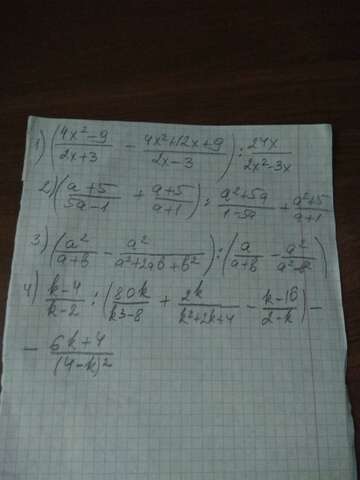 1) ((4x²-9)/(2x+3) - (4x²+12x+9)/(2x-3)) : 24x/(2x²-3x)
2) ((a+5)/(5a-1) + (a+5)/(a+1)) : (a²+5a)/(1-5a) + (a²+5)/(a+1)
3) (a²/(a+b) - a²/(a²+2ab+b²)) : (a/(a+b) - a²/(a²-b²))
4) (k-4)/(k-2) : (80k/(k³-8) + 2k/(k²+2k+4) - (k-16)/(2-k)) -
- (6k+4)/(4-k)²